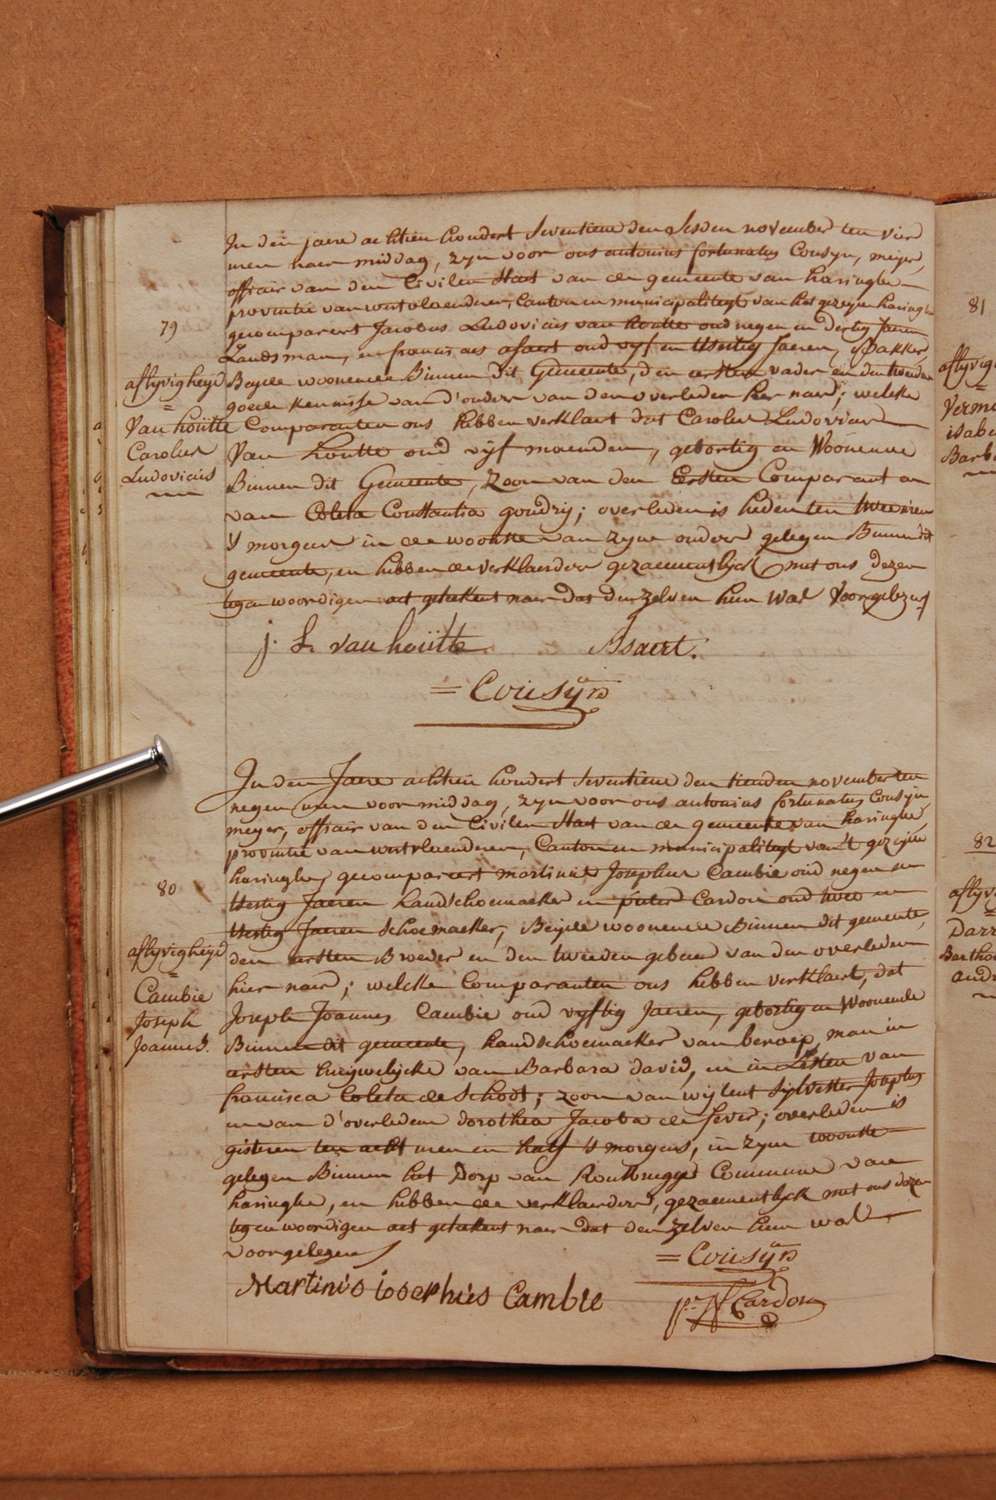 79
aflyvigheyd
=
Van houtte
Carolus
Ludovicus
In den jaere achtien hondert seventiene den sesden november ten vier
uren naer middag, zyn voor ons antonius fortunatus Cousyn, meyer,
officier van den Civilen staet van de gemeente van haringhe
provintie van westvlaenderen, Canton en municipaliteyt van het gezeyde haringhe
gecompareert Jacobus Ludovicus van houtte oud negen en dertig Jaeren
Landsman, en francis assaert oud vyf en tsestig Jaeren, Bakker,
Beyde woonende Binnen dit Gemeente, den eersten vader en den tweeden
goede kennisse van d'ouders van den overleden hier naer; welcke
Comparanten ons hebben verklaert dat Carolus Ludovicus
Van houtte oud vyf maenden, gebortig en Woonende
Binnen dit Gemeente, Zoon van den Eersten Comparant en
van Coleta Constantia goudzy; overleden is heden ten twee uren
's morgens in de woonste van zyne ouders gelegen Binnen dit
gemeente, en hebben de verklaerders gezaementlyck met ons dezen
tegenwoordigen act geteekent naer dat den zelven hun Wal Voorgelezen
j. L. van houtte Assaert.
= Cousyn
80
aflyvigheyd
=
Cambie
Joseph
Joannes.
In den Jaere achtien hondert seventiene den tienden november ten
negen uren voor middag, zyn voor ons antonius fortunatus Cousyn,
meyer, officier van den Civilen Staet van de gemeente van haringhe,
provintie van westvlaenderen, Canton en municipaliteyt van 't gezeyde
haringhe, gecompareert martinus Josephus Cambie oud negen en
tsestig Jaeren handschoemaeker en pieter Cardon oud twee en
tsestig Jaeren schoemaeker, Beyde woonende Binnen dit gemeente,
den eersten Broeder en den tweeden gebeur van den overleden
hier naer; welcken Comparanten ons hebben verklaert, dat
Joseph Joannes Cambie oud vyftig Jaeren, gebortig en Woonende
Binnen dit gemeente, handschoemaeker van beroep, man in
eersten huywelycke van Barbara david, en in Lesten van
francisca Coleta de Schodt; zoon van wylent sylvester Josephus
en van d'overledene dorothea Jacoba de fever; overleden is
gisteren ten acht uren en half 's morgens, in zyne woonste
gelegen Binnen het Dorp van Rousbrugge Commune van
haringhe, en hebben de verklaerders, gezaementlyck met ons dezen
tegenwoordigen act geteekent naer dat den zelven hun wal
voorgelezen
= Cousyn
Martinus iosephus Cambie
p: N Cardon
81
aflyvig
=
Verm
isabe
Barb
82
aflyv
=
Barth
and